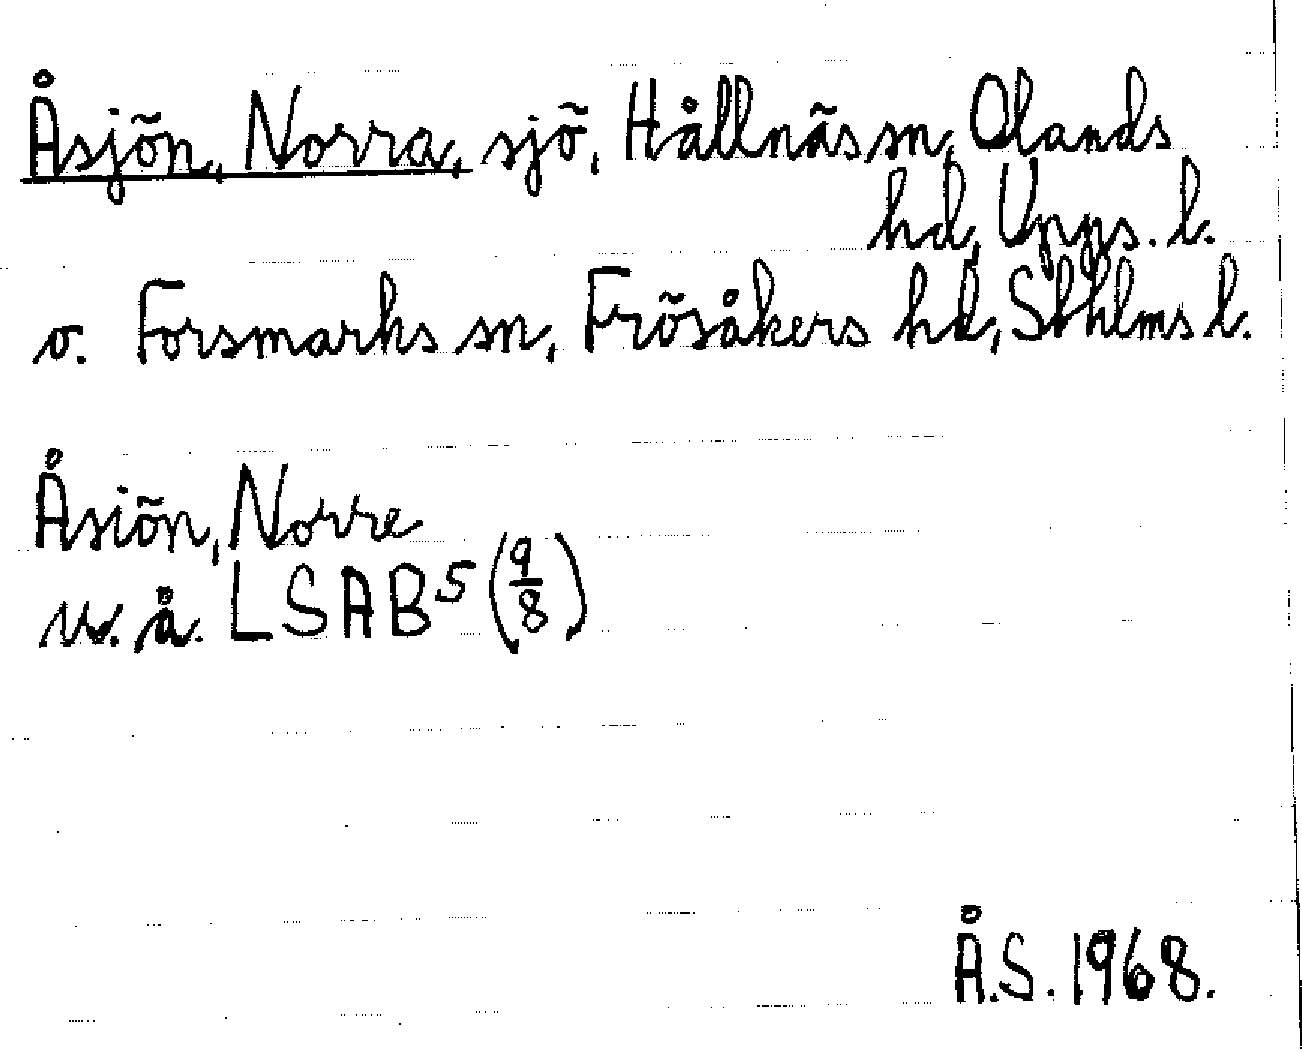 Åsjön, Norra, sjö, Hållnäs sn, Olands
hd, Upps. l.
o. Forsmarks sn, Frösåkers hd, Sthlms l.
Åsiön, Norre
u. å. LSA B⁵ (9/8)
Å.S. 1968.